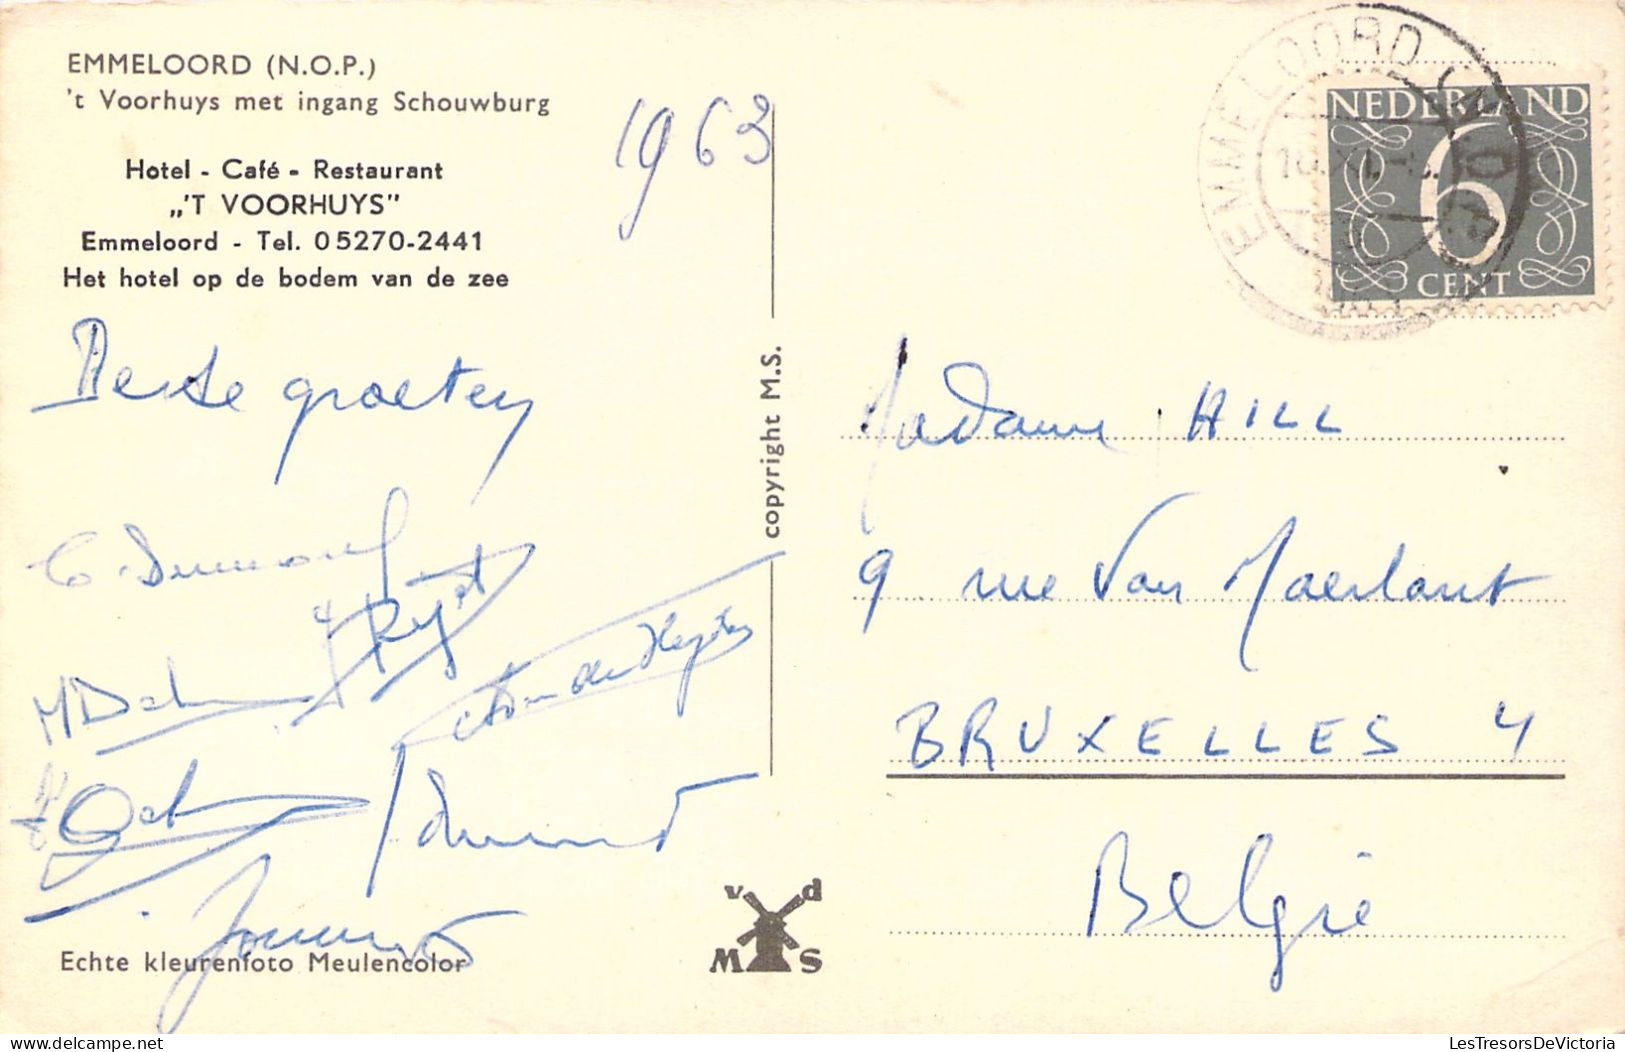 EMMELOORD (N.O.P.)
't Voorhuys met ingang Schouwburg
Hotel - Café - Restaurant
„'T VOORHUYS"
Emmeloord - Tel. 05270-2441
Het hotel op de bodem van de zee
1963
Beste groeten
Echte kleurenfoto Meulencolor
copyright M.S.
v d
M S
EMMELOORD (N.O.P.)
NEDERLAND
6
CENT
Madame HILL
9 rue Van Maerlant
BRUXELLES 4
België
LesTresorsDeVictoria
https://www.delcampe.net